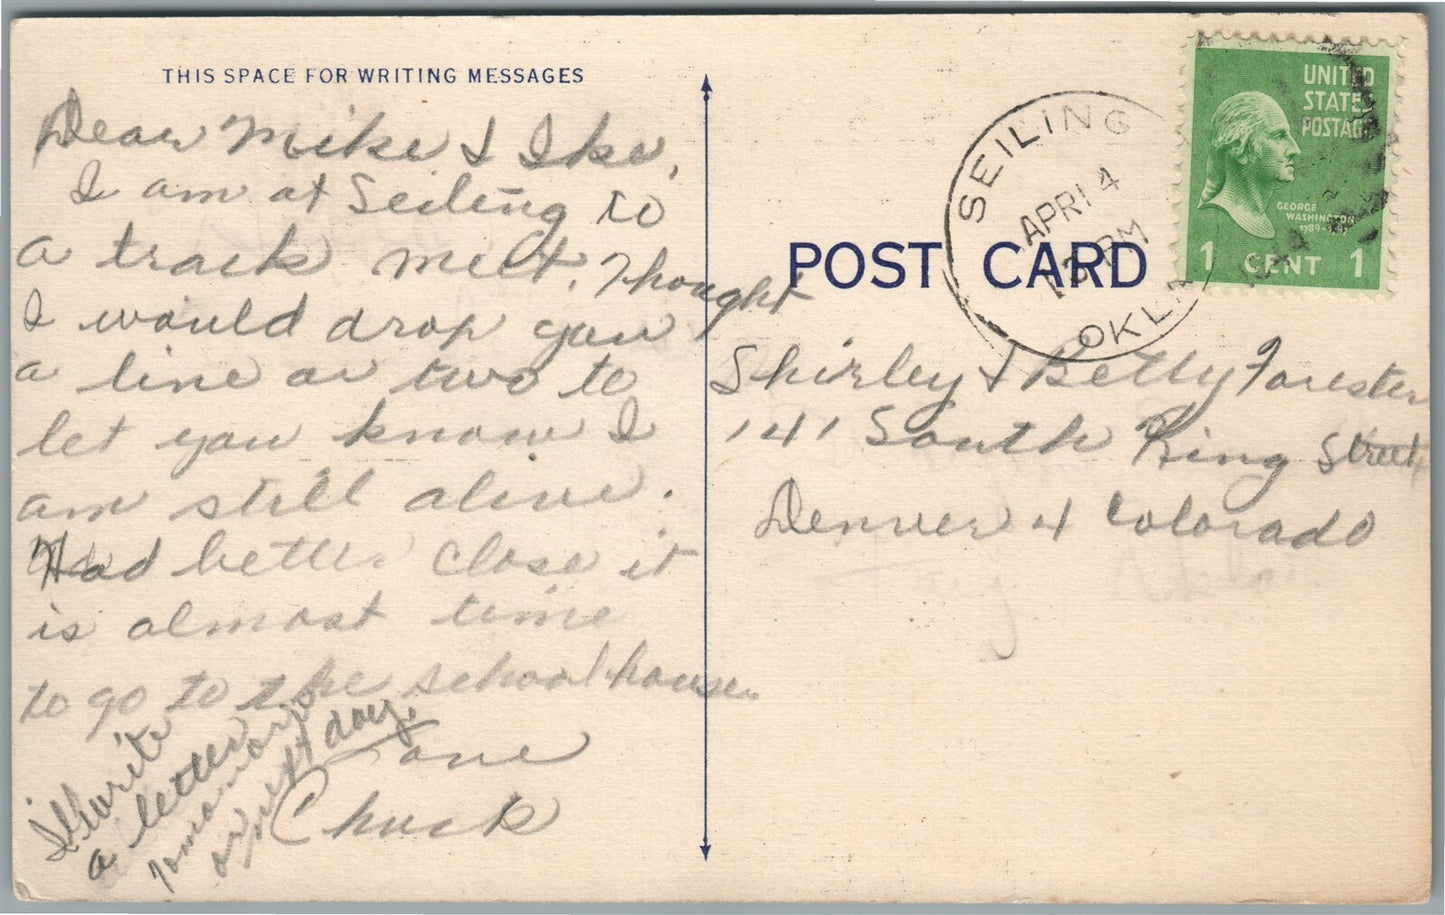 THIS SPACE FOR WRITING MESSAGES
Dear Mike & Ike,
I am at Seiling to
a track meet. Thought
I would drop you
a line or two to
let you know I
am still alive.
Had better close it
is almost time
to go to the school house.
Love
Chuck
I'll write
a letter
tomorrow
or next day.
SEILING
APR 14
PM
OKLA
UNITED
STATES
POSTAGE
GEORGE
WASHINGTON
1 CENT 1
POST CARD
Shirley & Betty Forester
141 South King Street
Denver 4 Colorado